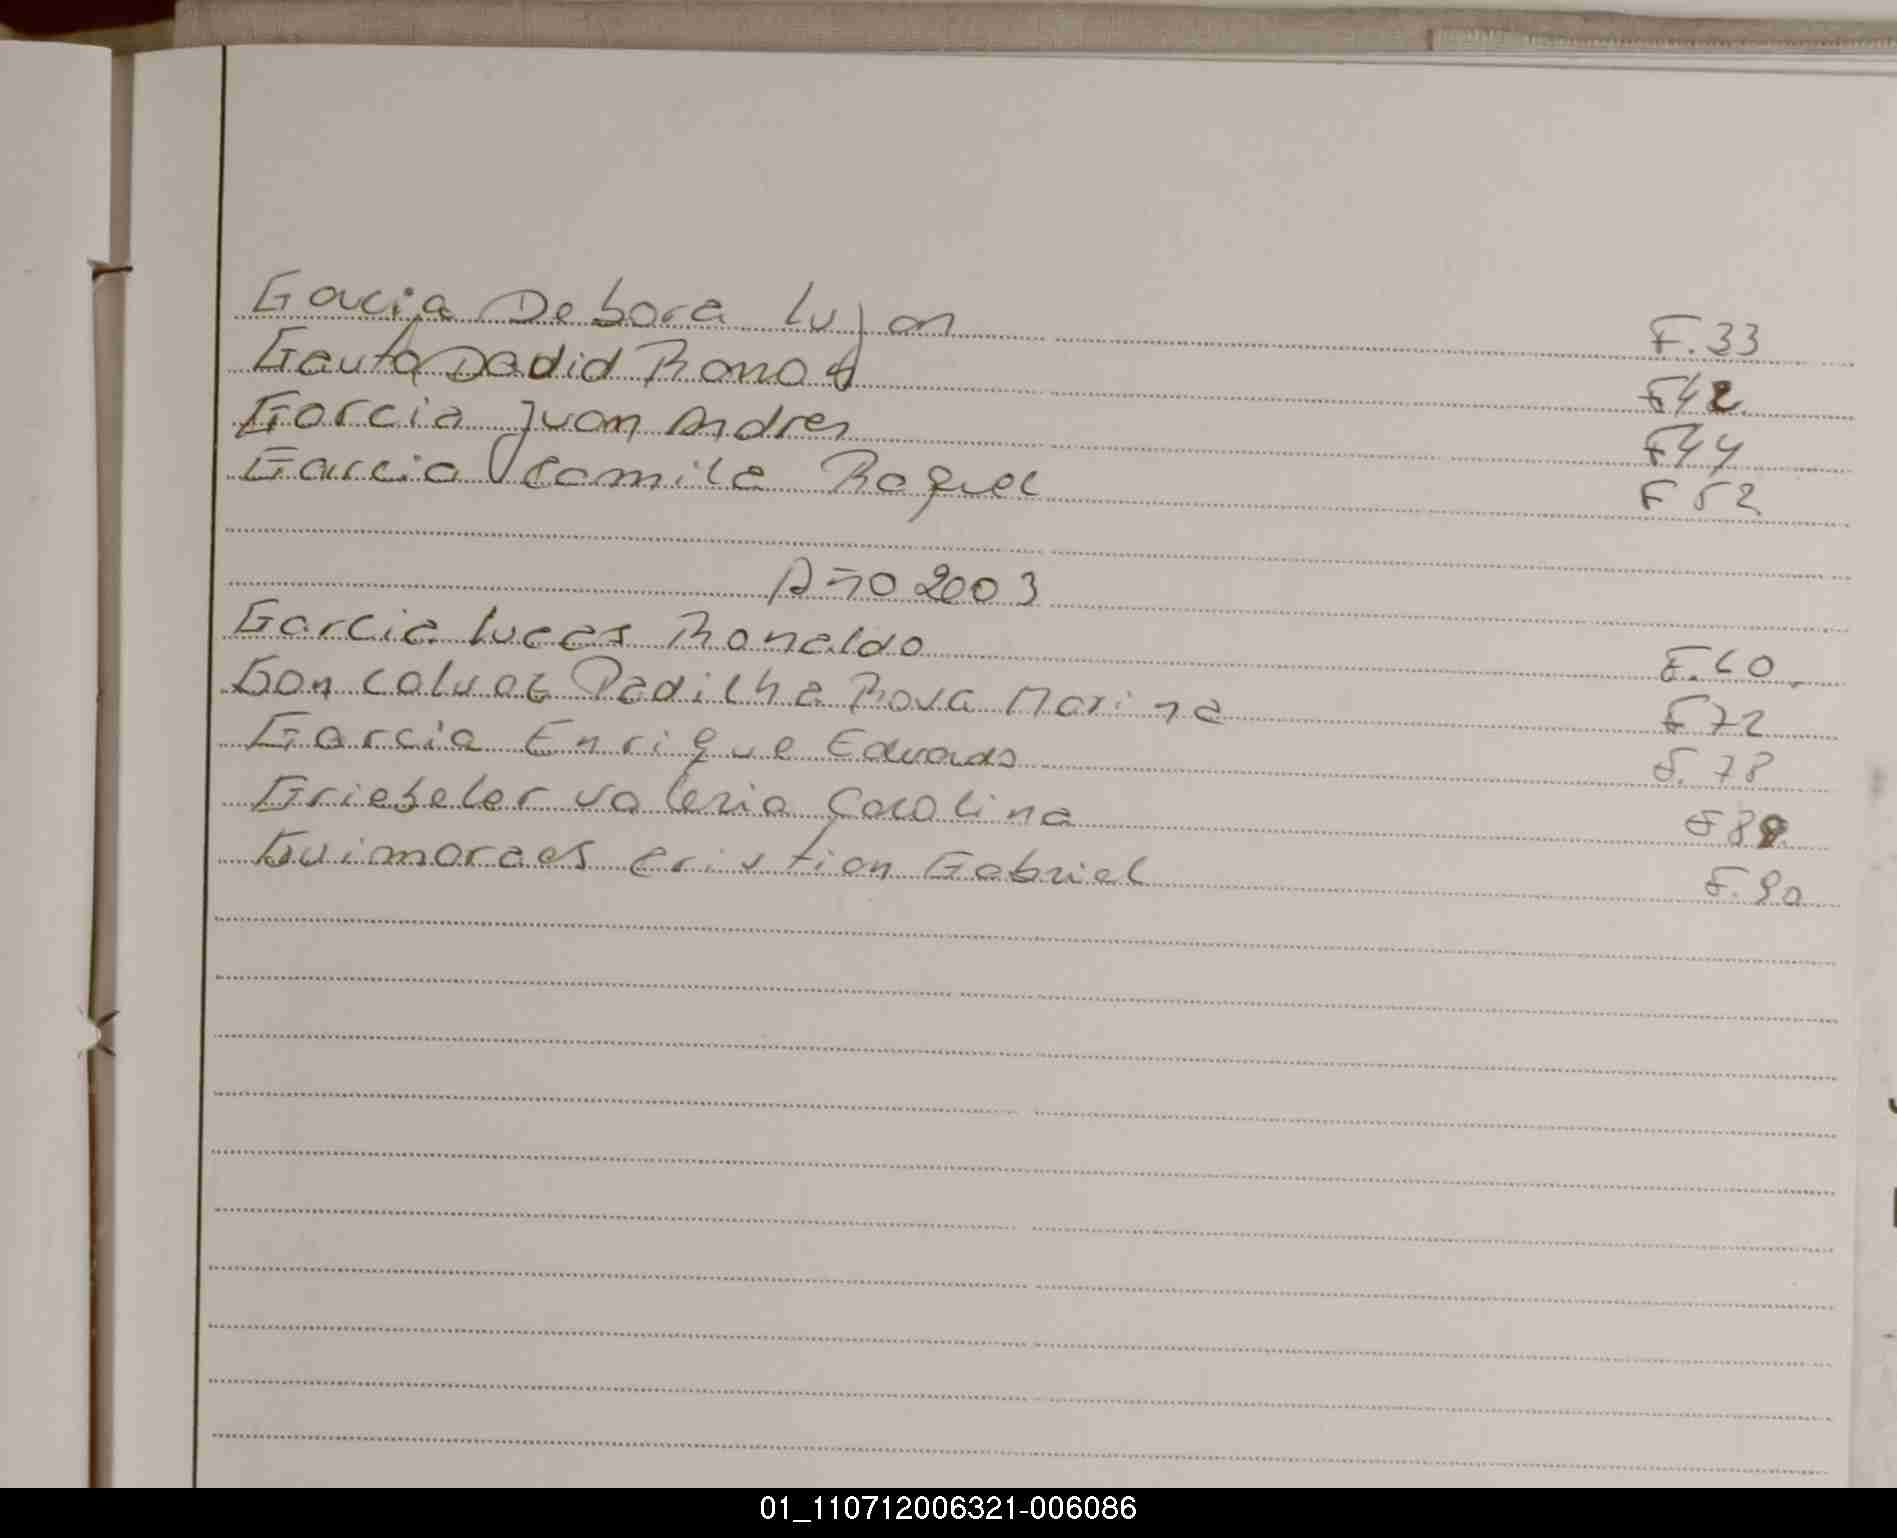 Garcia Debora Lujan F.33
Gauto Dadid Ramon F42
Garcia Juan Andres F44
Garcia Camila Raquel F 52
Año 2003
Garcia Lucas Ronaldo F.60.
Padilha Rosa Marina F72
Garcia Enrique Eduardo F.78
Griebeler Valeria Carolina
Guimoraes Cristian Gabriel F.90
01_110712006321-006086